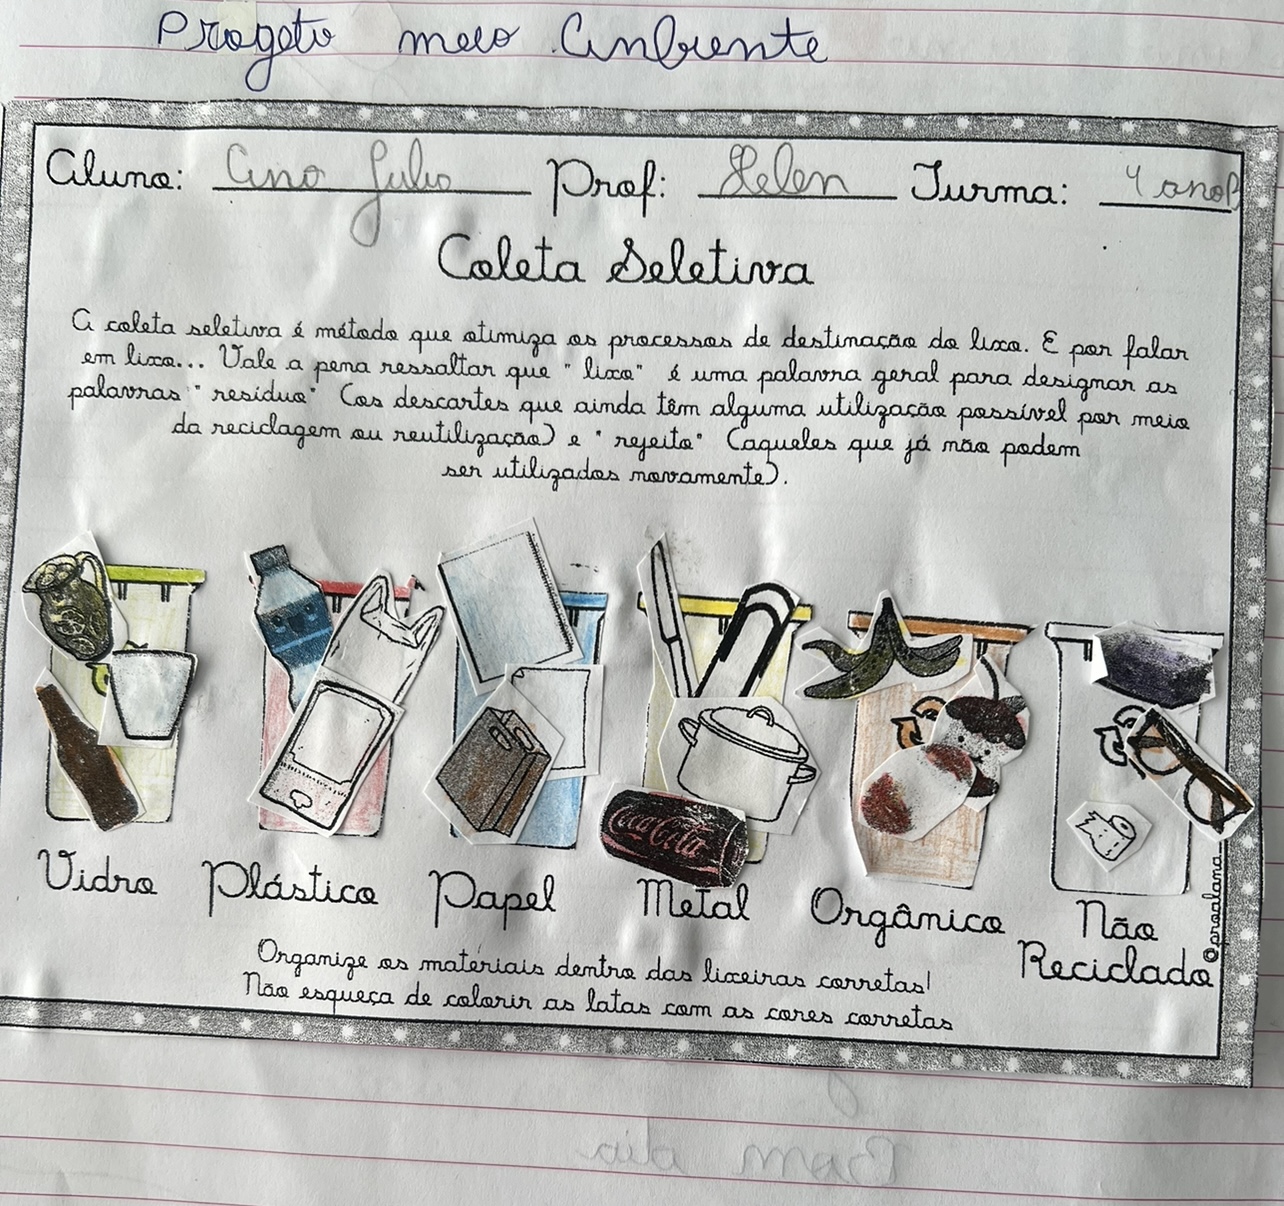 Projeto meio Ambiente
Aluno: Ana Julia Prof: Helen Turma: 4 ano B
Coleta Seletiva
A coleta seletiva é método que otimiza os processos de destinação do lixo. E por falar
em lixo... Vale a pena ressaltar que "lixo" é uma palavra geral para designar as
palavras "resíduo" (os descartes que ainda têm alguma utilização possível por meio
da reciclagem ou reutilização) e "rejeito" (aqueles que já não podem
ser utilizados novamente).
Coca-Cola
Vidro Plástico Papel Metal Orgânico Não
Reciclado
©proalana
Organize os materiais dentro das lixeiras corretas!
Não esqueça de colorir as latas com as cores corretas